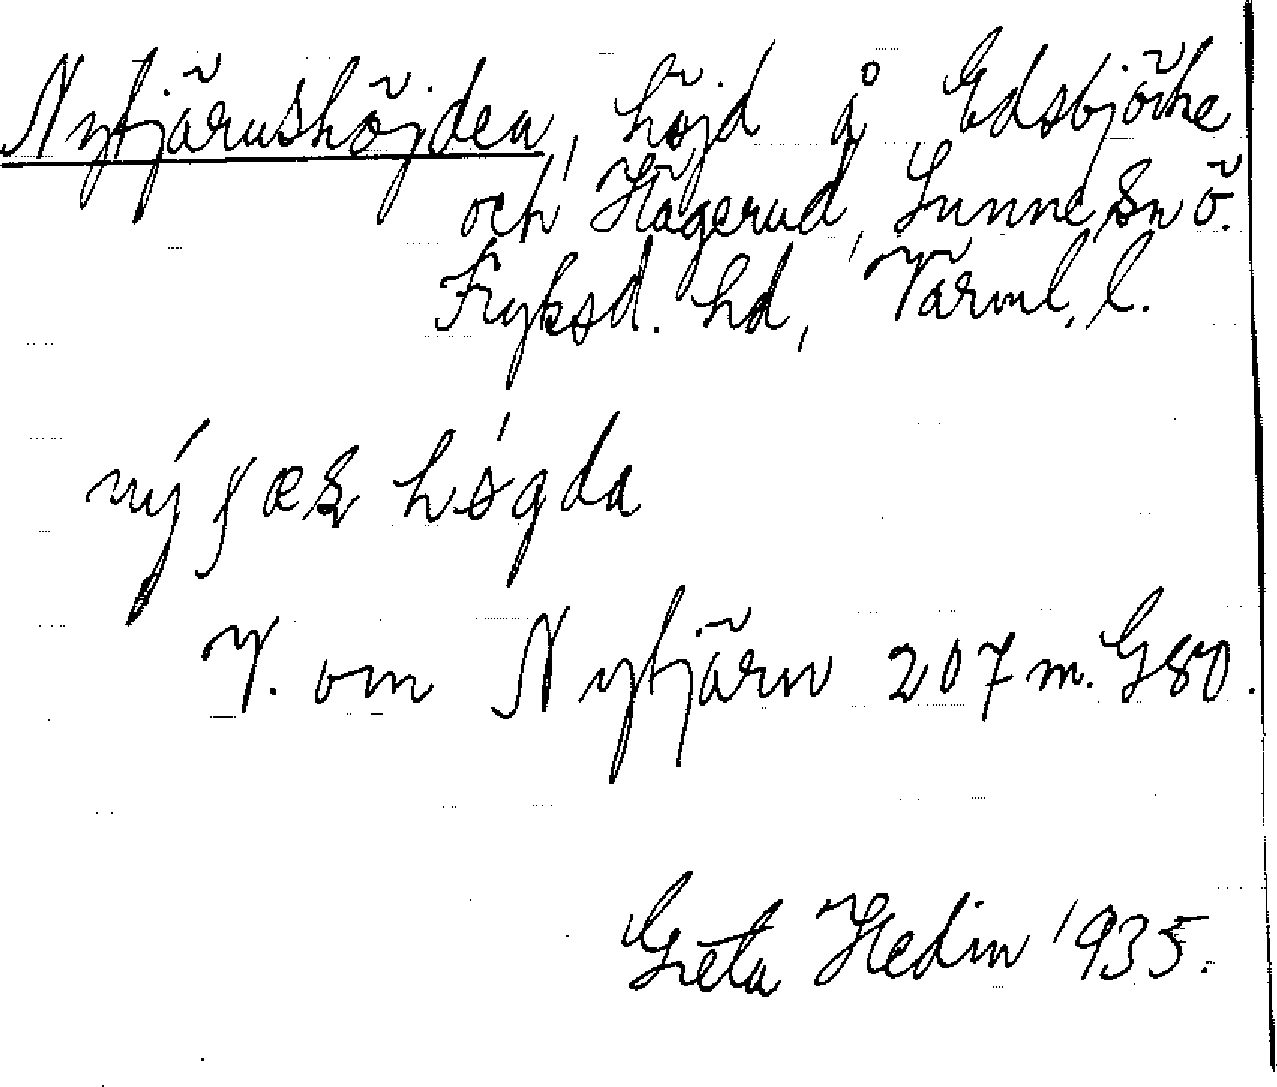 Nytjärnshöjden, höjd å Edsbjörke
och Hågerud, Sunne sn ö.
Fryksd. hd, Värml. l.
hǿgda
V. om Nytjärn 207 m. G80.
Greta Hedin 1935.